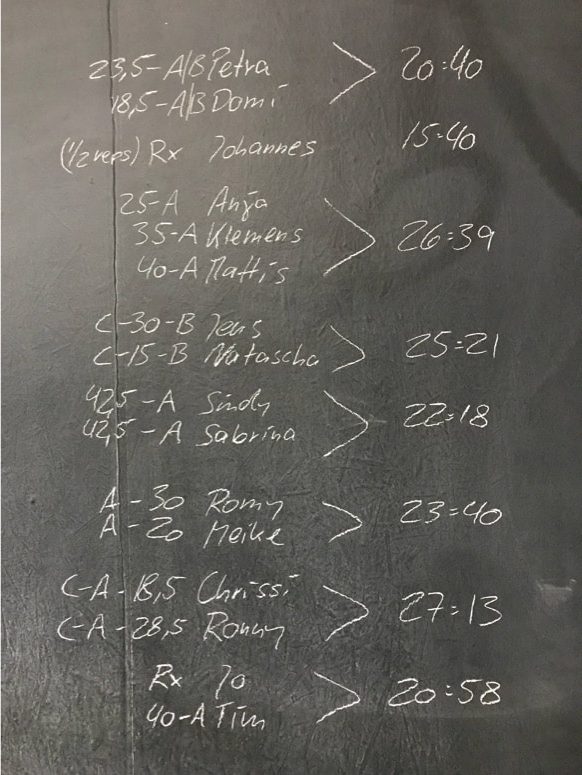 23,5-A/B Petra > 20:40
18,5-A/B Domi
(1/2 reps) Rx Johannes 15:40
25-A Anja
35-A Klemens > 26:39
40-A Mattis
C-30-B Jens
C-15-B Natascha > 25:21
42,5-A Sindy > 22:18
42,5-A Sabrina
A-30 Romy > 23:40
A-20 Meike
C-A-18,5 Chrissi > 27:13
C-A-28,5 Ronny
Rx Jo > 20:58
40-A Tim